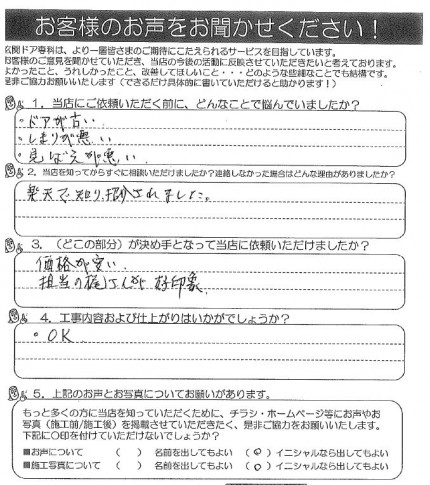 お客様のお声をお聞かせください！
玄関ドア専科は、より一層皆さまのご期待にこたえられるサービスを目指しています。
お客様のご意見をお聞かせいただき、当店の今後の活動に反映させていただきたいと考えております。
よかったこと、うれしかったこと、改善してほしいこと・・・どのような些細なことでも結構です。
是非ご協力お願いいたします（できるだけ具体的に書いていただけると助かります！）
1．当店にご依頼いただく前に、どんなことで悩んでいましたか？
・ドアが古い
・しまりが悪い
・見ばえが悪い
2．当店を知ってからすぐに相談いただけましたか？連絡しなかった場合はどんな理由がありましたか？
楽天で知り、されました。
3．（どこの部分）が決め手となって当店に依頼いただけましたか？
価格が安い
担当のさんが好印象
4．工事内容および仕上がりはいかがでしょうか？
・OK
5．上記のお声とお写真についてお願いがあります。
もっと多くの方に当店を知っていただくために、チラシ・ホームページ等にお声やお
写真（施工前/施工後）を掲載させていただきたく、是非ご協力をお願いいたします。
下記に〇印を付けていただけないでしょうか？
■お声について （ ） 名前を出してもよい （○）イニシャルなら出してもよい
■施工写真について （ ） 名前を出してもよい （○）イニシャルなら出してもよい